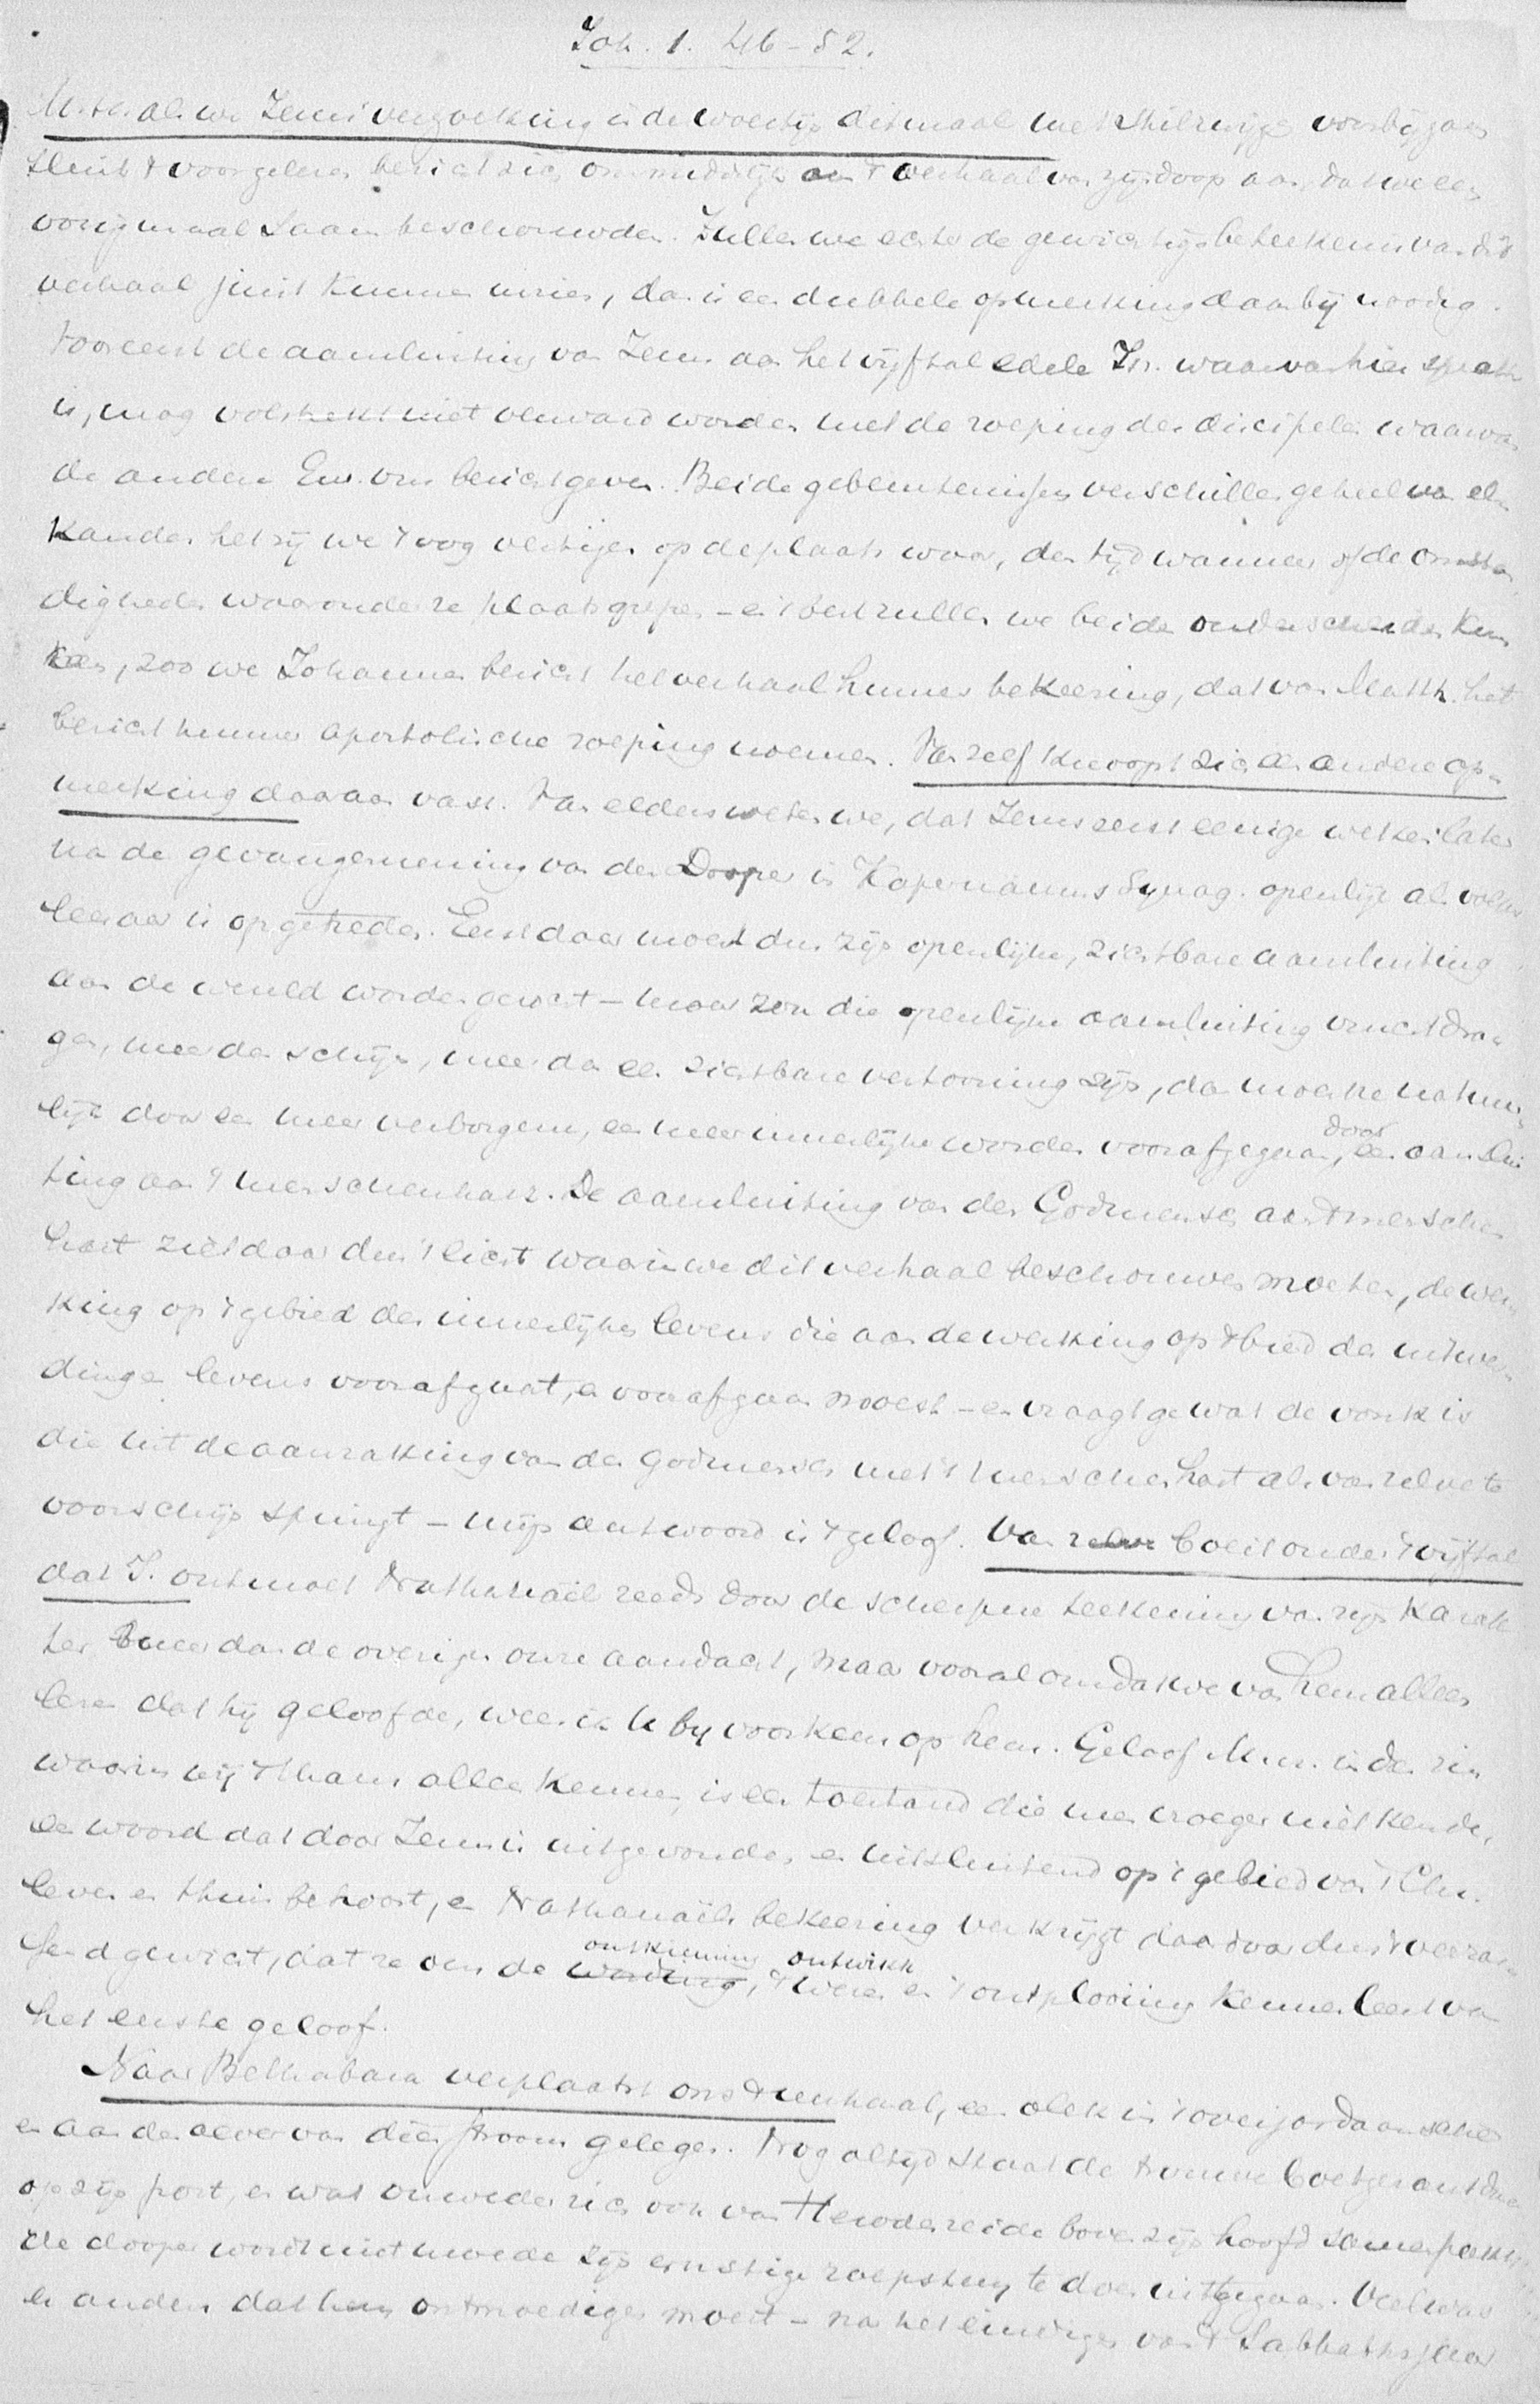 Joh. 1. 46-52.
M. H. als we Jezus' verzoeking in de woestijn ditmaal met stilzwijgen voorbijgaan
sluit 't voorgelezen bericht zich onmiddelijk aan 't verhaal van zijn doop aan, dat we een
vorig maal saam beschouwden. Zullen we echter de gewichtige beteekenis van dit
verhaal juist kunnen inzien, dan is een dubbele opmerking daarbij noodig.
Vooreerst de aansluiting van Jezus aan het vijftal edele Isr. waarvan hier sprake
is, mag volstrekt niet verward worden met de roeping der discipelen waarvan
de andere Ev. ons bericht geven. Beide gebeurtenissen verschillen geheel van el-
kander hetzij we 't oog vestigen op de plaats waar, den tijd wanneer of de omstan
digheden waaronder ze plaatsgrepen - en 't best zullen we beide onderscheiden kun
nen, zoo we Johannes bericht het verhaal hunner bekeering, dat van Matth. het
bericht hunner apostolische roeping noemen. Van zelf knoopt zich een andere op-
merking daaraan vast. Van elders weten we, dat Jezus eerst eenige weken later
na de gevangenneming van den Dooper in Kapernaums Synag. openlijk als volks
leeraar is opgetreden. Eerst daar moest dus zijn openlijke, zichtbare aansluiting
aan de wereld worden gezocht - maar zou die openlijke aansluiting vrucht dra-
gen, meer dan schijn, meer dan een zichtbare vertooning zijn, dan moest ze natuur
lijk door een meer verborgene, een meer innerlijke worden voorafgegaan, door een aanslui
ting aan 't menschenhart. De aansluiting van den Godmensch aan 't menschen
hart ziet daar dus 't licht waarin we dit verhaal beschouwen moeten, de wer
king op 't gebied des innerlijken levens die aan de werking op 't gebied des uitwen
digen levens voorafgaat, en voorafgaan moest - en vraagt ge wat de vonk is
die uit de aanraking van den Godmensch met 't menschenhart als van zelve te
voorschijn springt - mijn antwoord is 't geloof. Van zelve boeit onder 't vijftal
dat J. ontmoet Nathanaël reeds door de scherpere teekening van zijn karak
ter meer dan de overigen onze aandacht, maar vooral omdat we van hem alleen
lezen dat hij geloofde, wees ik U bij voorkeur op hem. Geloof M. H. in den zin
waarin wij 't thans alleen kennen, is een toestand die men vroeger niet kende,
een woord dat door Jezus is uitgevonden en uitsluitend op 't gebied van 't Chr.
leven er thuis behoort, en Nathanaëls bekeering verkrijgt daardoor dus 't verras-
send gewicht, dat ze ons de ontkieming, ontwikk en 't ontplooiing kennen leert van
het eerste geloof.
Naar Bethabara verplaatst ons 't verhaal, een vlek in 't overjordaansche
en aan den oever van dien stroom gelegen. Nog altijd staat de trouwe boetgezant daar
op zijn post, en wat onweder zich ook van Herodes zeide boven zijn hoofd samenpakke
de dooper wordt niet moede zijn ernstige roepstem te doen uitgaan. Veel was
er anders dat hem ontmoedigen moest - na het eindigen van 't Sabbathsjaar